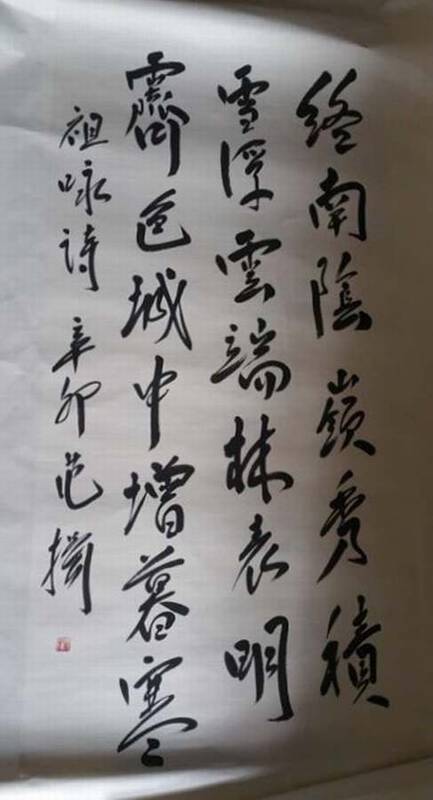 終南陰嶺秀積
雪浮雲端林表明
霽色城中增暮寒
祖咏詩 辛卯 范擲